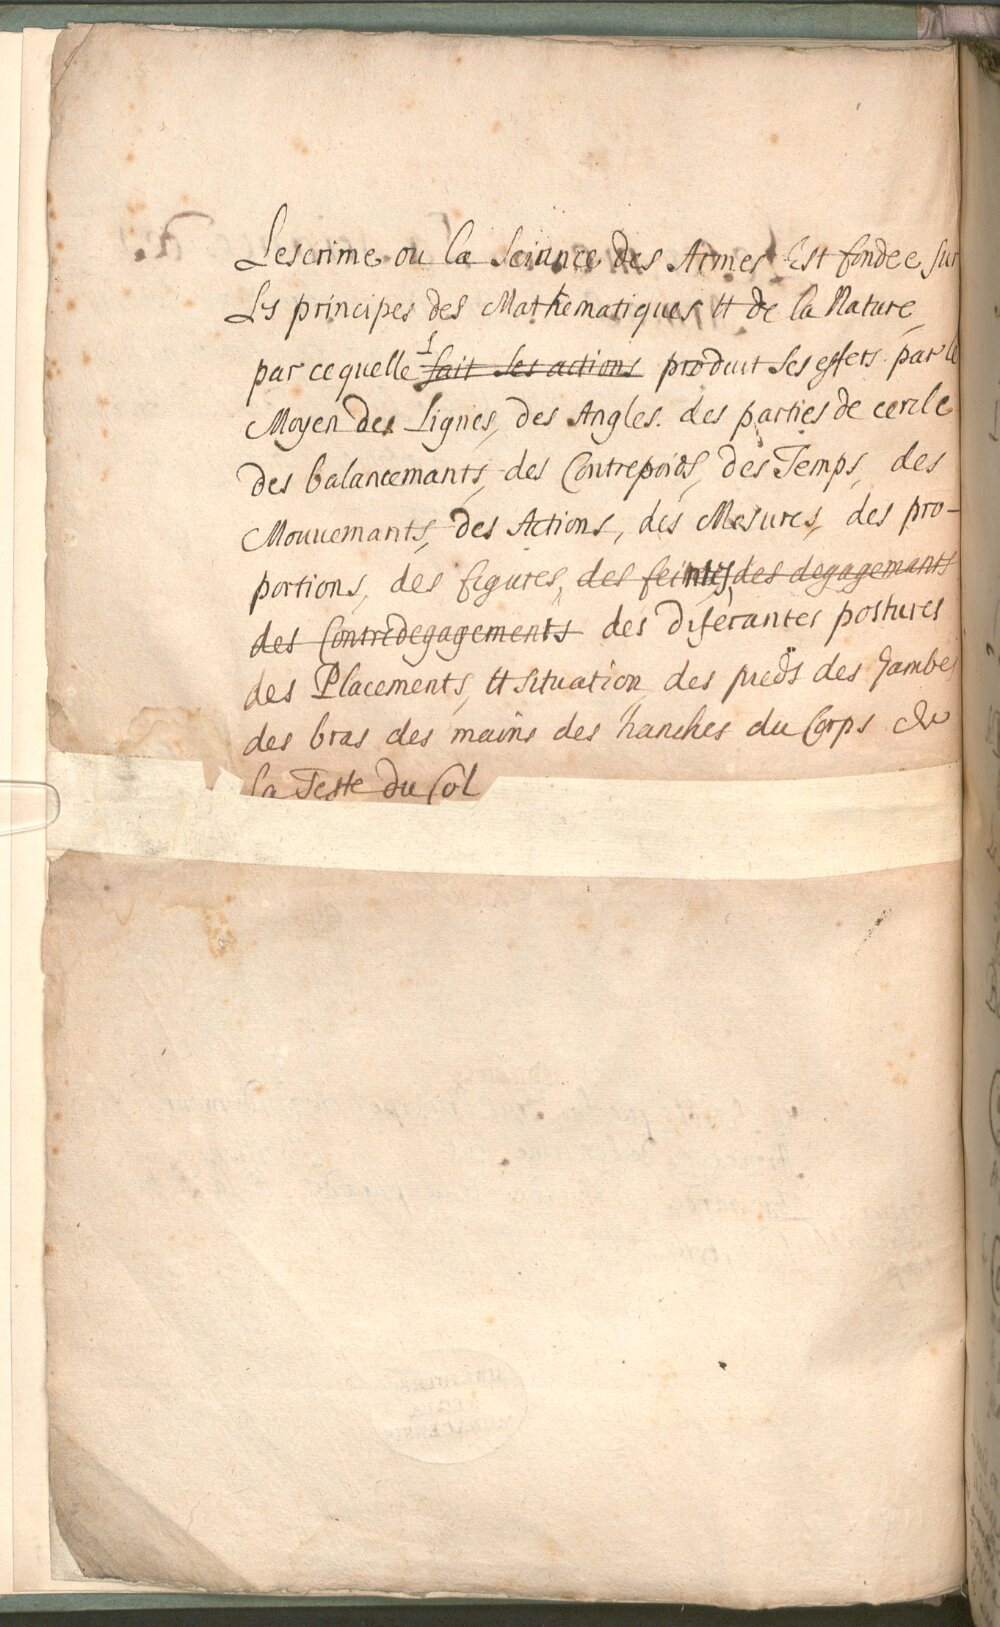 Lescrime ou la Sciance des Armes Est fondee sur
Les principes des Mathematiques Et de la Nature,
par ce quelle fait ses actions produit ses effets par le
Moyen des Lignes, des Angles. des parties de cercle
des balancemants, des Contrepoids, des Temps, des
Mouuemants, des Actions, des Mesures, des pro-
portions, des figures, des feintes, des degagemants
des Contredegagements des diferantes postures
des Placements, Et situation des pieds des Jambes
des bras des mains des hanches du Corps &
la Teste du Col